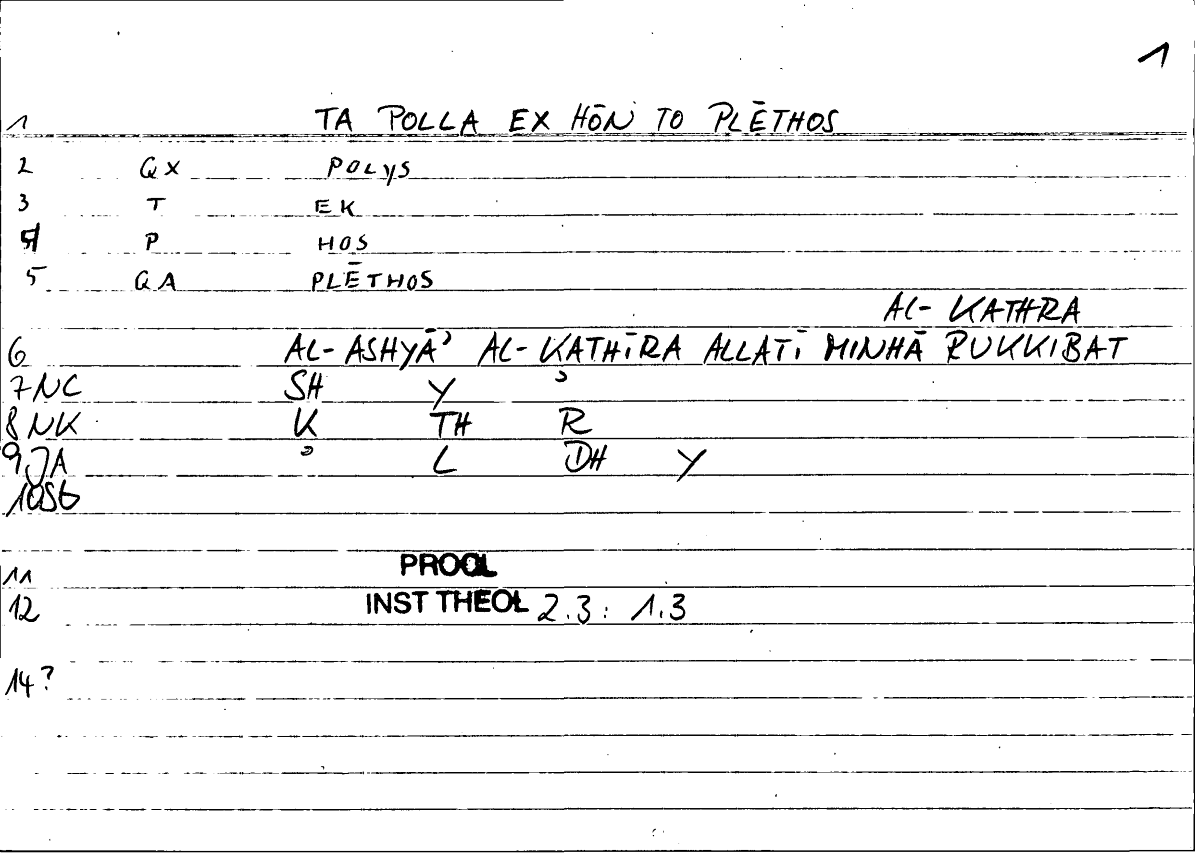 1
1 TA POLLA EX HŌN TO PLĒTHOS
2 QX POLYS
3 T EK
4 P HOS
5 QA PLĒTHOS
AL- KATHRA
6 AL- ASHYĀʾ AL- KATHĪRA ALLATĪ MINHĀ RUKKIBAT
7 NC SH Y ʾ
8 NK K TH R
9 JA ʾ L DH Y
10SG
11 PROCL
12 INST THEOL 2.3: 1.3
14?